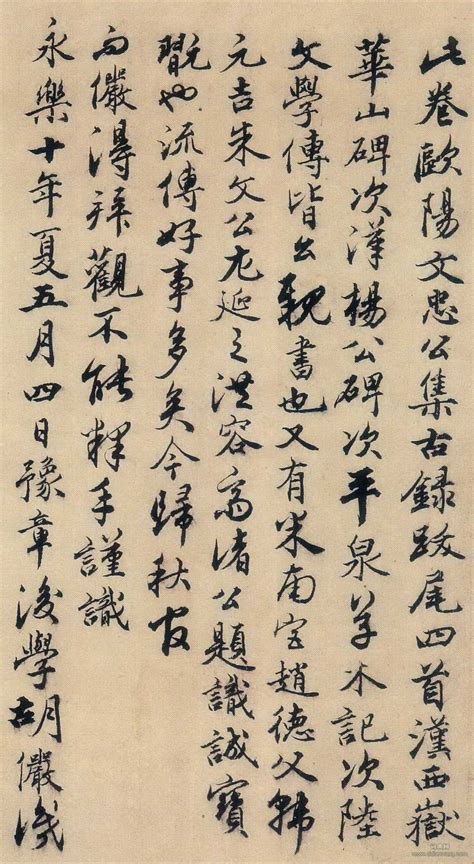 此卷歐陽文忠公集古録跋尾四首漢西嶽
華山碑次漢楊公碑次平泉草木記次陸
文學傳皆公親書也又有米南宫趙德父韓
元吉朱文公尤延之洪容齋諸公題識誠寶
翫也流傳好事多矣今歸秋官
而儼得拜觀不能釋手謹識
永樂十年夏五月四日豫章後學胡儼識